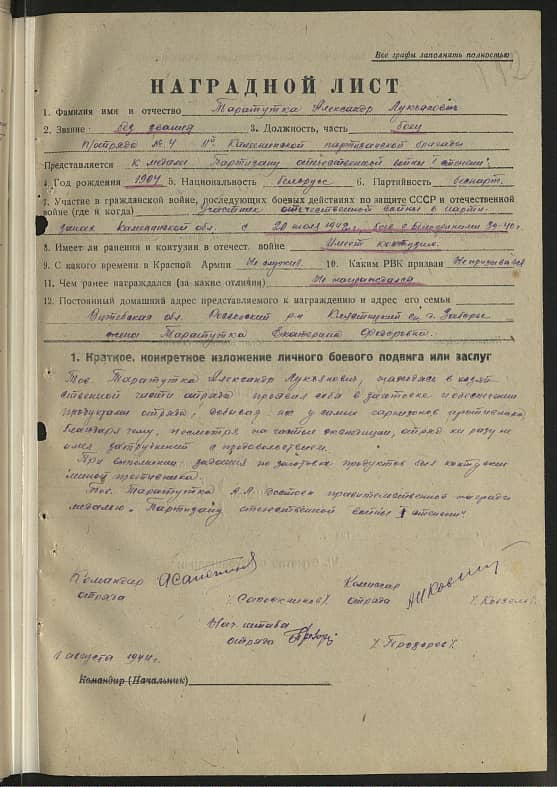 Все графы заполнять полностью
НАГРАДНОЙ ЛИСТ
1. Фамилия имя и отчество Таратутка Александр Лукьянович
2. Звание без звания 3. Должность, часть боец
отряда № 4 партизанской бригады
Представляется к медали „Партизану отечественной войны I степени“
4. Год рождения 1907 5. Национальность белорус 6. Партийность беспарт.
7. Участие в гражданской войне, последующих боевых действиях по защите СССР и отечественной
войне (где и когда) участник отечественной войны в парти-
занах обл. с 20 июля 1942г.
8. Имеет ли ранения и контузии в отечест. войне Имеет контузию.
9. С какого времени в Красной Армии Не служил 10. Каким РВК призван Не призывался
11. Чем ранее награждался (за какие отличия) Не награждался
12. Постоянный домашний адрес представляемого к награждению и адрес его семьи
Витебская обл. р-н
жена Таратутка Екатерина Федоровна.
1. Краткое, конкретное изложение личного боевого подвига или заслуг
Тов. Таратутка Александр Лукьянович, находясь в хозяй-
ственной части отряда проявил себя в заготовке и обеспечении
продуктами отряда, добывая их у самых гарнизонов противника,
благодаря чему, несмотря на частые экспедиции, отряд ни разу не
имел затруднений с продовольствием.
При выполнении задания по заготовке продуктов был контужен
миной противника.
Тов. Таратутка А.Л. достоин правительственной награды
медалью „Партизану отечественной войны I степени“
Командир Комиссар
отряда /Сапожников/. отряда
Нач. штаба
отряда
августа 1944г.
Командир (Начальник)